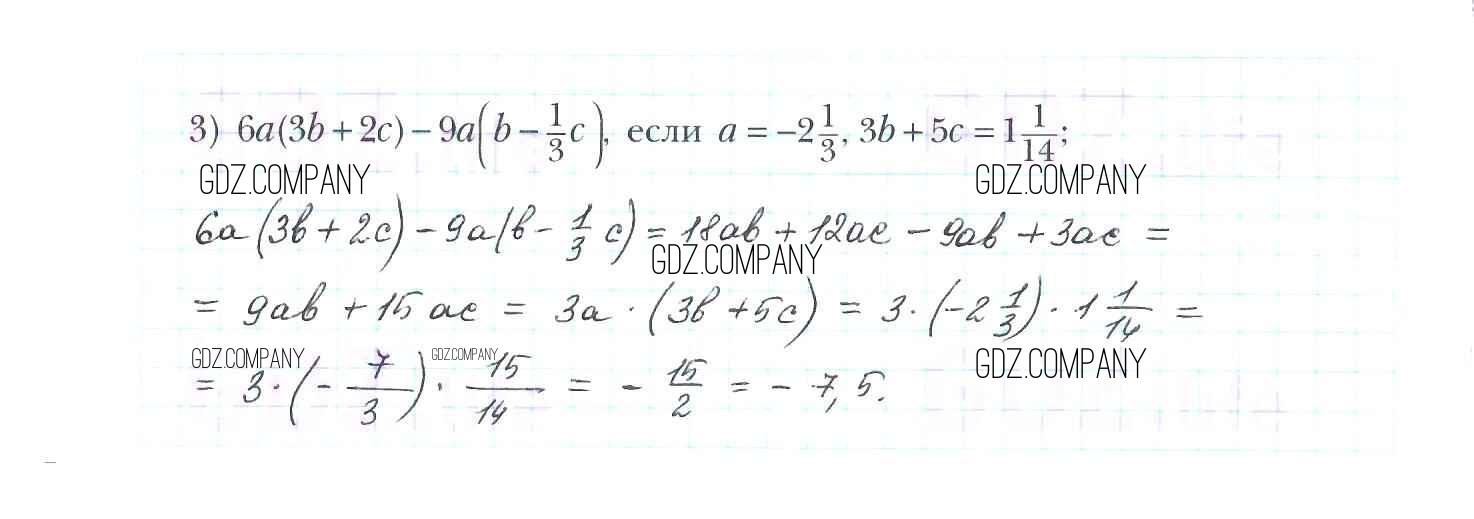 3) 6a(3b + 2c) − 9a(b − 1/3 c), если a = −2 1/3, 3b + 5c = 1 1/14;
GDZ.COMPANY GDZ.COMPANY
6a(3b + 2c) − 9a(b − 1/3 c) = 18ab + 12ac − 9ab + 3ac =
GDZ.COMPANY
= 9ab + 15ac = 3a · (3b + 5c) = 3 · (−2 1/3) · 1 1/14 =
GDZ.COMPANY GDZ.COMPANY GDZ.COMPANY
= 3 · (− 7/3) · 15/14 = − 15/2 = − 7,5.